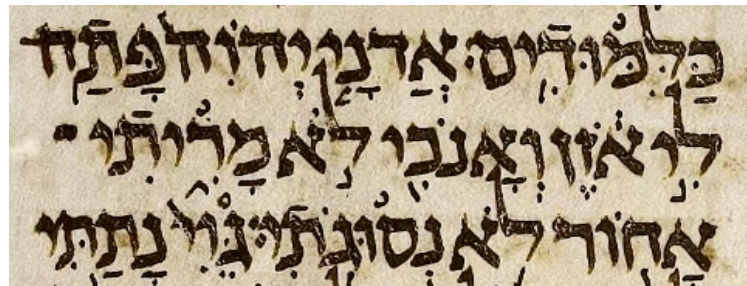 כַּלִּמּוּדִים׃ אֲדֹנָי יְהוִה פָּתַח־
לִי אֹזֶן וְאָנֹכִי לֹא מָרִיתִי
אָחוֹר לֹא נְסוּגֹתִי׃ גֵּוִי נָתַתִּי